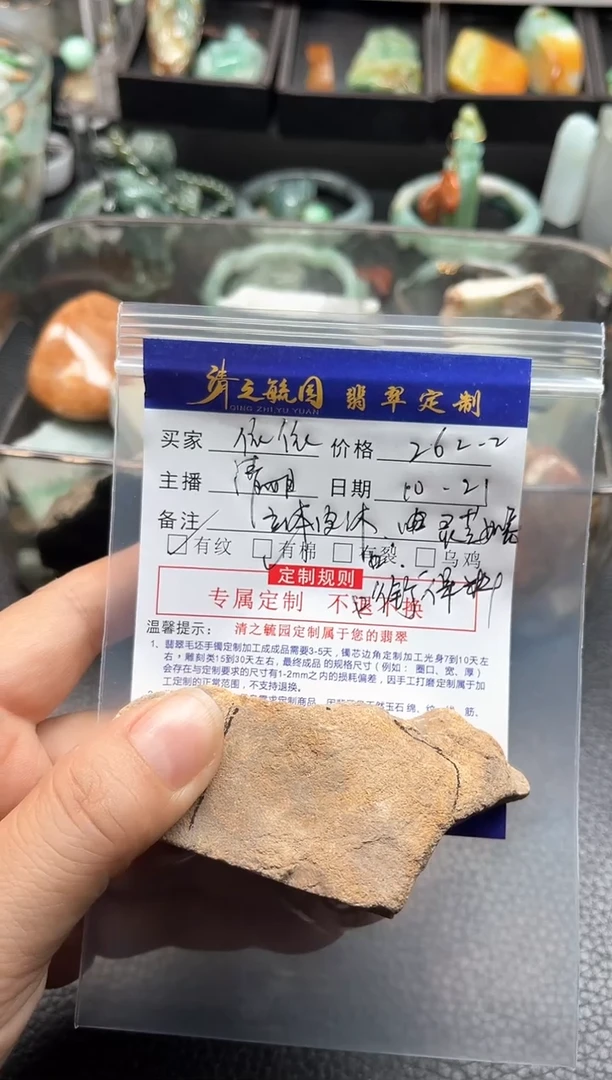 清之毓园 翡翠定制
QING ZHI YU YUAN
买家 依依 价格 262-2
主播 清明 日期 10-21
备注 立体
有纹 有棉 有裂 乌鸡
定制规则
专属定制 不退不换
温馨提示： 清之毓园定制属于您的翡翠
1、翡翠毛坯手镯定制加工成成品需要3-5天，镯芯边角定制加工光身7到10天左
右，雕刻类15到30天左右，最终成品的规格尺寸（例如：圈口、宽、厚）
会存在与定制要求的尺寸有1-2mm之内的损耗偏差，因手工打磨定制属于加
工定制的正常范围，不支持退换。